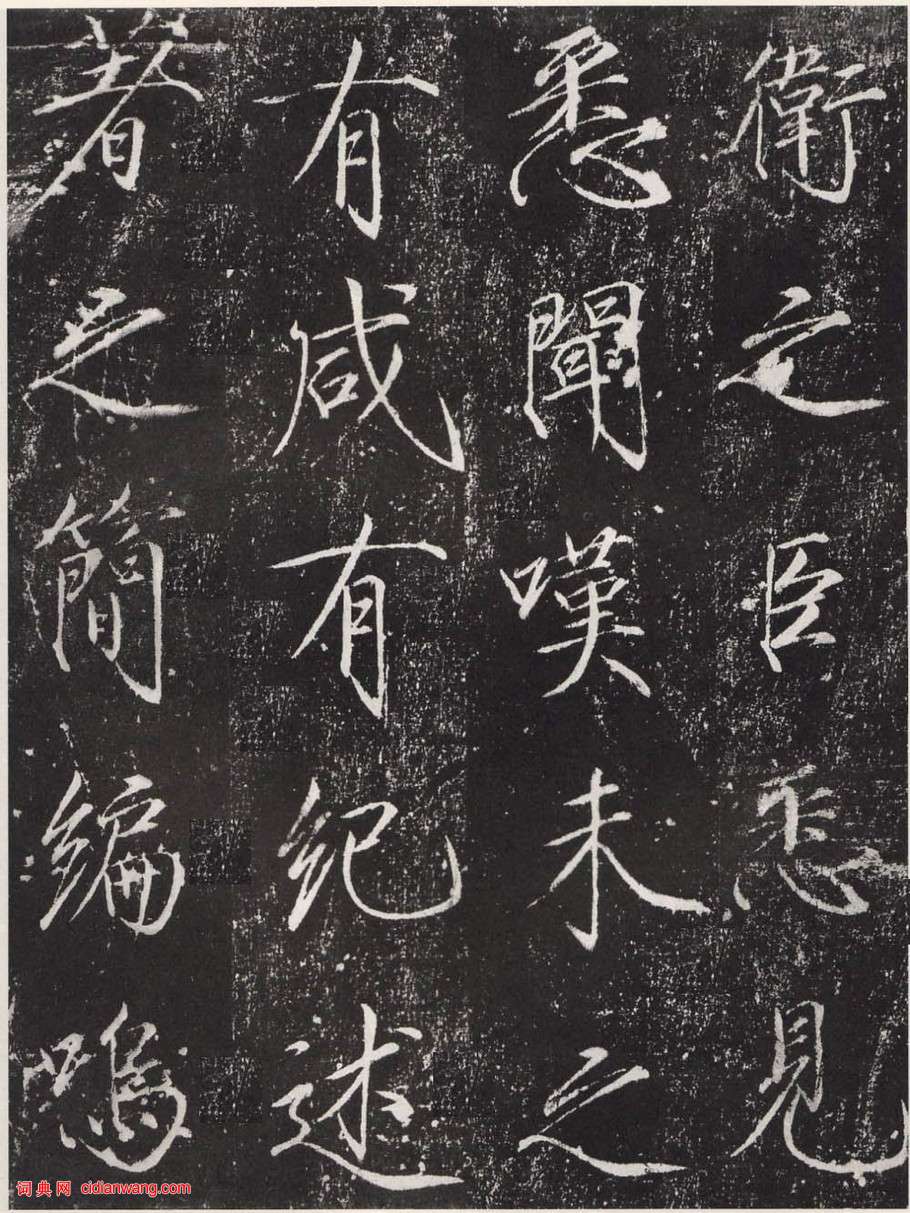 衛之臣悉見
悉聞嘆未之
有咸有紀述
著之簡編嗚
词典网 cidianwang.com